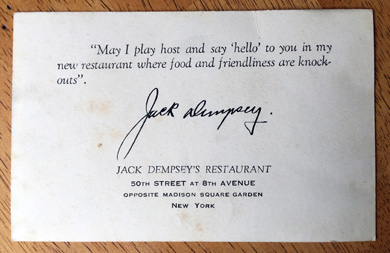 "May I play host and say 'hello' to you in my
new restaurant where food and friendliness are knock-
outs".
Jack Dempsey.
JACK DEMPSEY'S RESTAURANT
50TH STREET AT 8TH AVENUE
OPPOSITE MADISON SQUARE GARDEN
NEW YORK